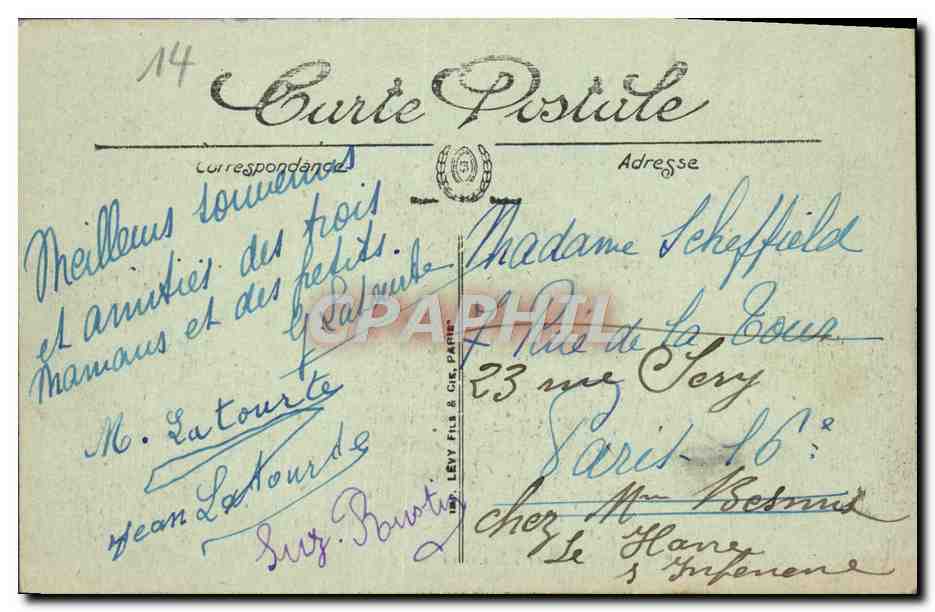 14
Carte Postale
Correspondance
Adresse
Meilleurs souvenirs
et amitiés des trois
mamans et des petits.
G Latourte
M. Latourte
Jean Latourte
Suz. Rustin
IMP. LÉVY FILS & CIE, PARIS
Madame Scheffield
7 Rue de La Tour
23 rue Sery
Paris 16e
chez Mme
Le Havre
s Inferieure
CPAPHIL